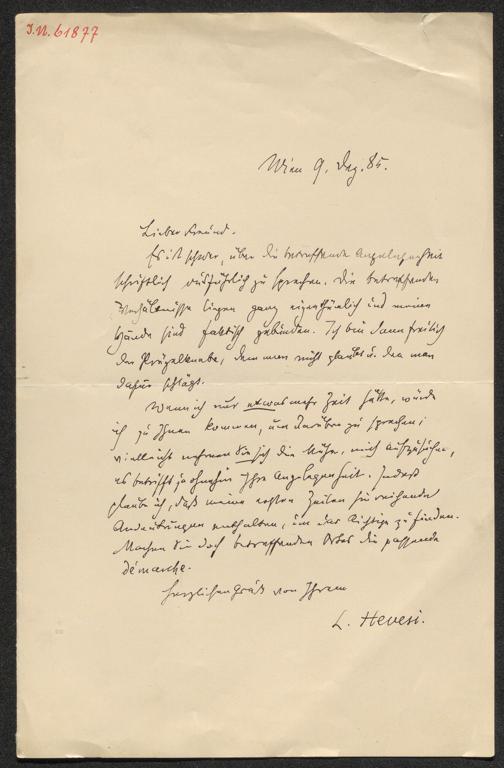 J.N. 61877
Wien 9. Dez. 85.
Lieber Freund.
Es ist schwer, über die betreffende Angelegenheit
schriftlich ausführlich zu sprechen. Die betreffenden
Verhältnisse liegen ganz eigenthümlich und meine
Hände sind faktisch gebunden. Ich bin dann freilich
der Prügelknabe, dem man nicht glaubt u. den man
dafür schlägt.
Wenn ich nur etwas mehr Zeit hätte, würde
ich zu Ihnen kommen, um darüber zu sprechen;
vielleicht nehmen Sie sich die Mühe, mich aufzusuchen,
es betrifft ja ohnehin Ihre Angelegenheit. Indeß
glaube ich, daß meine ersten Zeilen hinreichende
Andeutungen enthalten, um das Richtige zu finden.
Machen Sie doch betreffenden Ortes die passende
démarche.
Herzlichen Gruß von Ihrem
L. Hevesi.